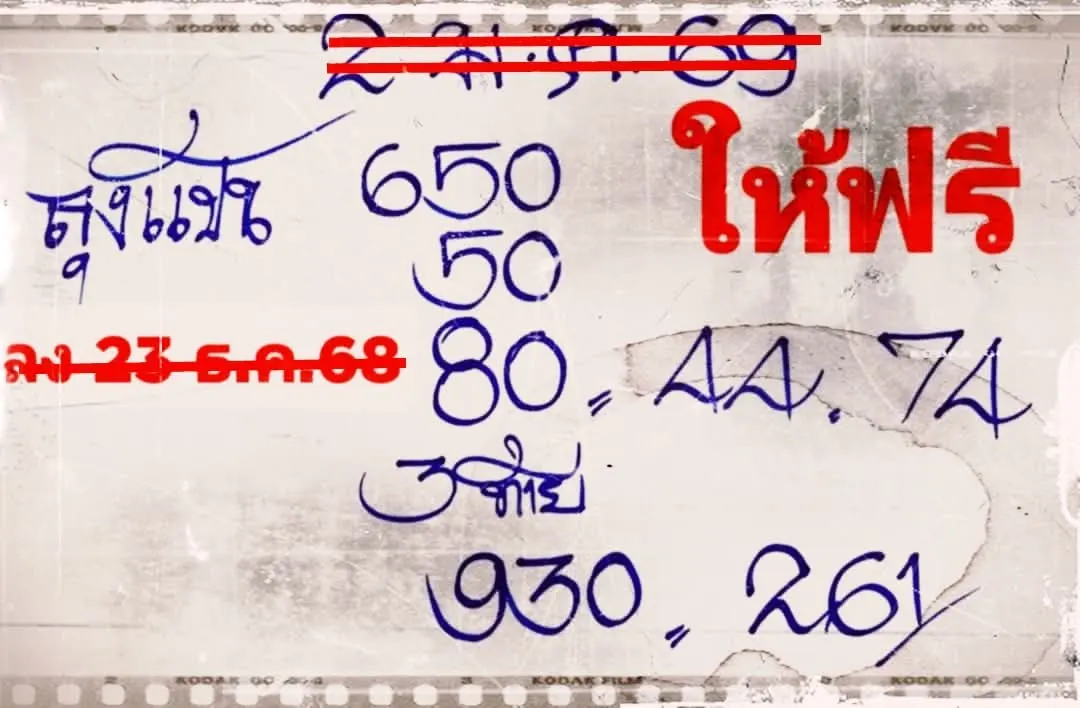 2 ม.ค. 69
ให้ฟรี
ลุงแป๋น 650
50
ลง 23 ธ.ค.68
80 , 44 . 74
3 ท้าย
930 , 261
KODAK FILM